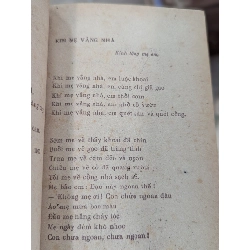 KHI MẸ VẮNG NHÀ
Kính tặng mẹ em
Khi mẹ vắng nhà, em luộc khoai
Khi mẹ vắng nhà, em cùng chị giã gạo
Khi mẹ vắng nhà, em thổi cơm
Khi mẹ vắng nhà, em nhổ cỏ vườn
Khi mẹ vắng nhà, em quét sân và quét cổng.
Sớm mẹ về thấy khoai đã chín
Buổi mẹ về gạo đã trắng tinh
Trưa mẹ về cơm dẻo và ngon
Chiều mẹ về cỏ đã quang vườn
Tối mẹ về cổng nhà sạch sẽ.
Mẹ bảo em: Dạo này ngoan thế!
— Không mẹ ơi! Con chưa ngoan đâu
Áo mẹ mưa bạc màu
Đầu mẹ nắng cháy tóc
Mẹ ngày đêm khó nhọc
Con chưa ngoan, chưa ngoan!